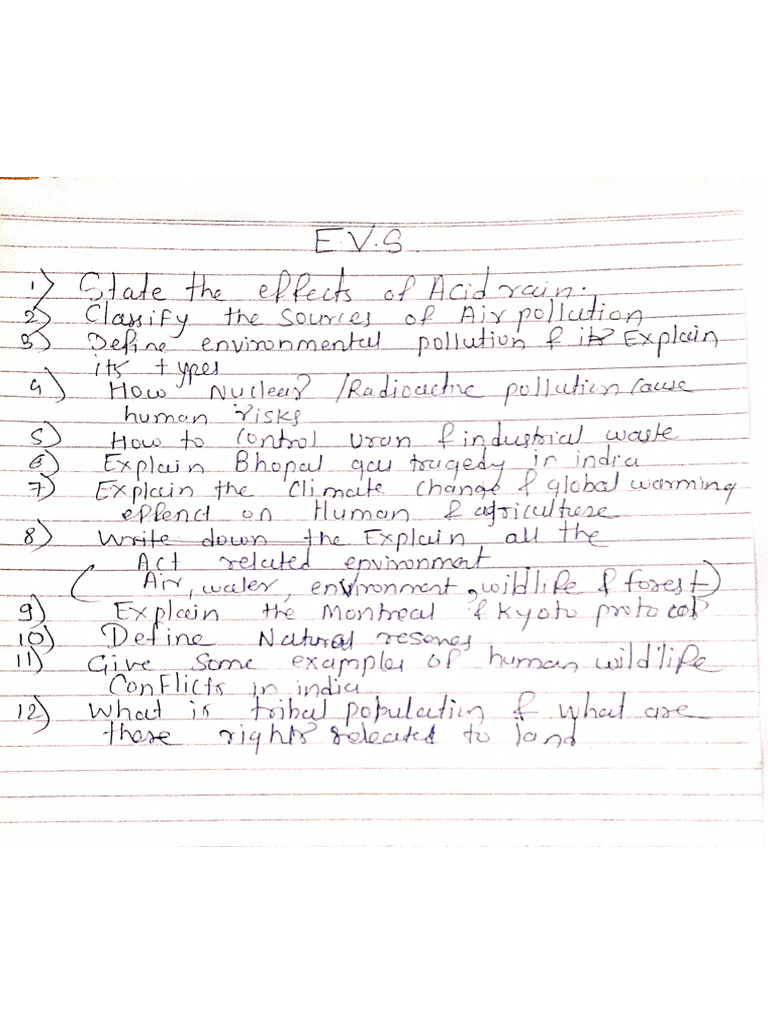 E.V.S.
1) State the effects of Acid rain.
2) Classify the sources of Air pollution
3) Define environmental pollution & Explain
its types
4) How Nuclear /Radioactive pollution cause
human risks
5) How to control uran & industrial waste
6) Explain Bhopal gas tragedy in india
7) Explain the Climate change & global warming
on Human &
8) Write down the Explain all the
Act related environment
(Air, water, environment, wildlife & forest)
9) Explain the Montreal & Kyoto protocol
10) Define Natural
11) Give some examples of human wildlife
Conflicts in india
12) What is tribal population & what are
rights to land